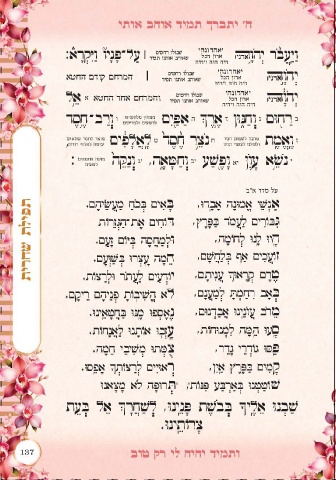 ה' יתברך תמיד אוהב אותי
וַיַּעֲבֹר יְהֹוָה עַל־פָּנָיו וַיִּקְרָא:
יְהֹוָה המרחם קודם החטא
יְהֹוָה והמרחם אחר החטא אֵל
רַחוּם וְחַנּוּן אֶרֶךְ אַפַּיִם וְרַב־חֶסֶד
וֶאֱמֶת נֹצֵר חֶסֶד לָאֲלָפִים
נֹשֵׂא עָוֹן וָפֶשַׁע וְחַטָּאָה, וְנַקֵּה
על סדר א"ב
אַנְשֵׁי אֱמוּנָה אָבָדוּ, בָּאִים בְּכֹחַ מַעֲשֵׂיהֶם.
גִּבּוֹרִים לַעֲמֹד בַּפֶּרֶץ, דּוֹחִים אֶת־הַגְּזֵרוֹת
הָיוּ לָנוּ לְחוֹמָה, וּלְמַחְסֶה בְּיוֹם זַעַם.
זוֹעֲכִים אַף בְּלַחֲשָׁם, חֵמָה עָצְרוּ בְּשַׁוְּעָם.
טֶרֶם קְרָאוּךָ עֲנִיתָם, יוֹדְעִים לַעֲתֹר וּלְרַצּוֹת.
כְּאָב רִחַמְתָּ לְמַעֲנָם, לֹא הֱשִׁיבוֹתָ פְנֵיהֶם רֵיקָם.
מֵרֹב עֲוֹנֵינוּ אֲבַדְנוּם, נֶאֶסְפוּ מֶנּוּ בַּחֲטָאֵינוּ.
סָעוּ הֵמָּה לִמְנוּחוֹת, עָזְבוּ אוֹתָנוּ לַאֲנָחוֹת.
פַּסּוּ גּוֹדְרֵי גָדֵר, צֻמְּתוּ מְשִׁיבֵי חֵמָה,
קָמִים בַּפֶּרֶץ אַיִן, רְאוּיִים לְרַצּוֹתְךָ אָפֵסוּ.
שׁוֹטַטְנוּ בְּאַרְבַּע פִּנּוֹת, תְּרוּפָה לֹא מָצָאנוּ
שַׁבְנוּ אֵלֶיךָ בְּבֹשֶׁת פָּנֵינוּ, לְשַׁחֲרָךְ אֵל בְּעֵת
צָרוֹתֵינוּ.
תפילת שחרית
137
ותמיד יהיה לי רק טוב